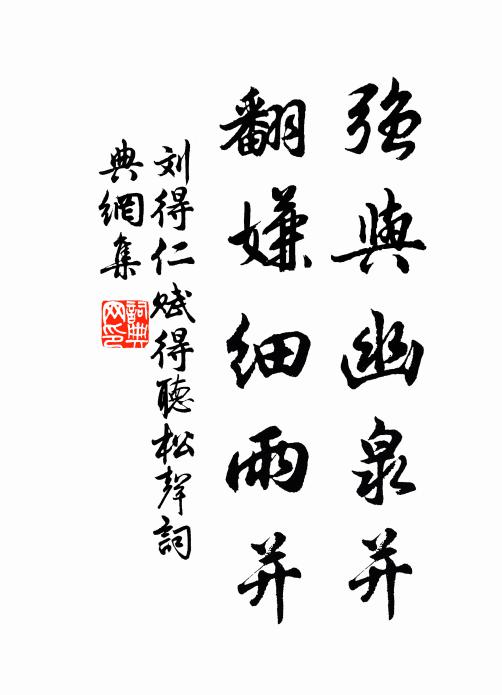 強與幽泉并
翻嫌細雨并
刘得仁賦得聽松聲詞
典網集
詞典
网印